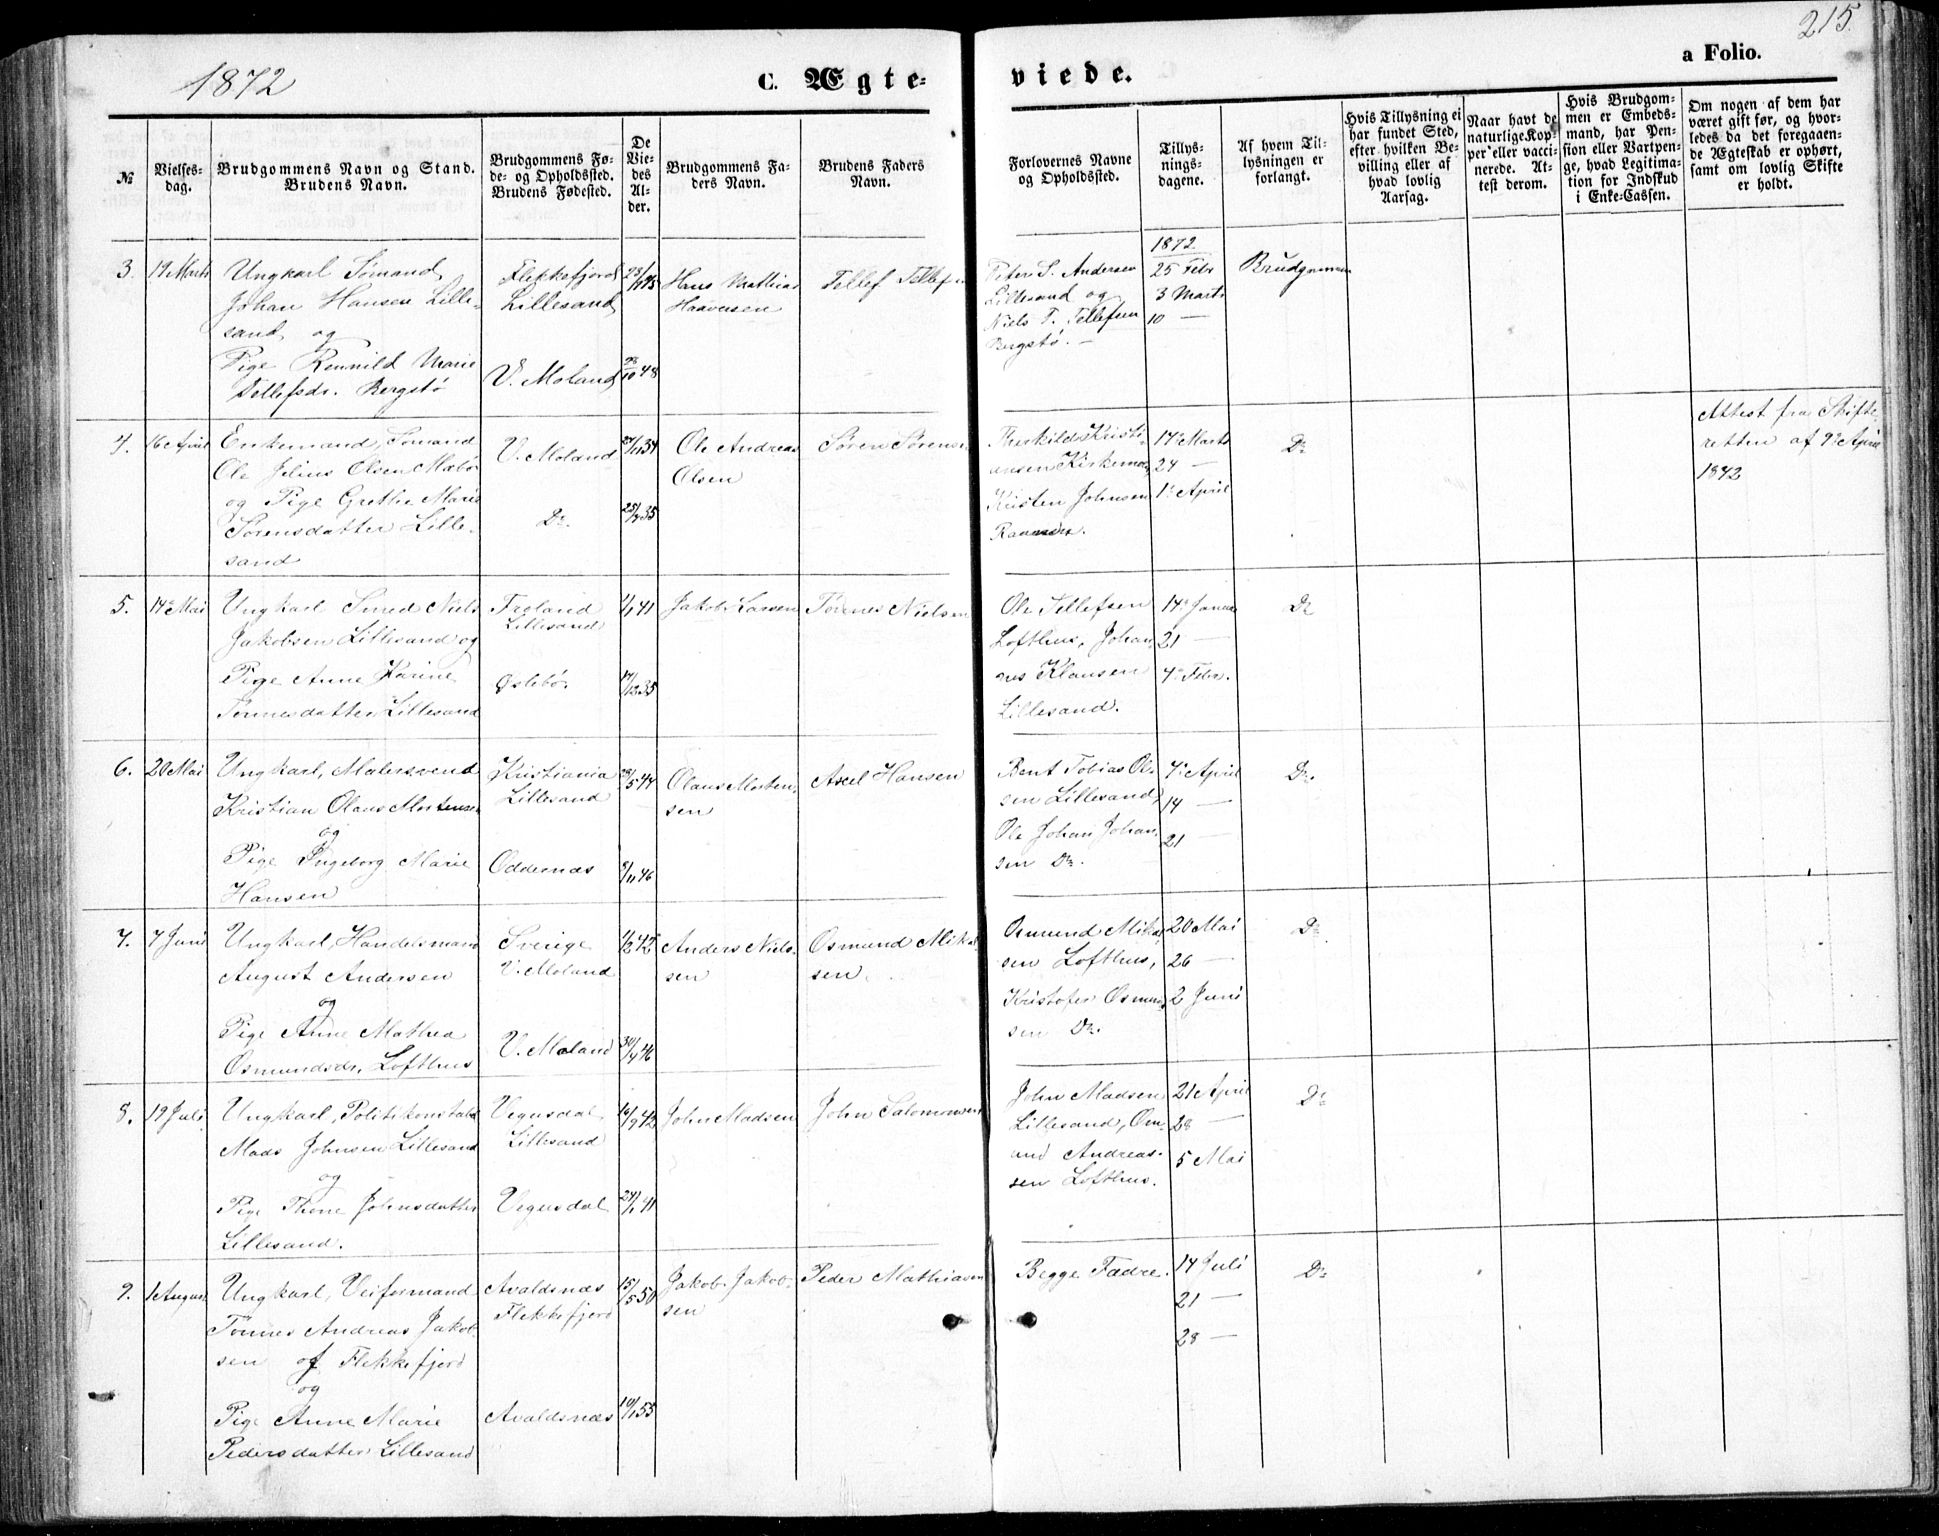 215.
1872
C. Ægte-
viede.
a Folio.
№
Vielses-
dag.
Brudgommens Navn og Stand.
Brudens Navn.
Brudgommens Fø-
de- og Opholdssted.
Brudens Fødested.
De
Vie-
des
Al-
der.
Brudgommens Fa-
ders Navn.
Brudens Faders
Navn.
Forlovernes Navne
og Opholdssted.
Tillys-
nings-
dagene.
Af hvem Til-
lysningen er
forlangt.
Hvis Tillysning ei
har fundet Sted,
efter hvilken Be-
villing eller af
hvad lovlig
Aarsag.
Naar havt de
naturlige Kop-
per eller vacci-
nerede. At-
test derom.
Hvis Brudgom-
men er Embeds-
mand, har Pen-
sion eller Vartpen-
ge, hvad Legitima-
tion for Indskud
i Enke-Cassen.
Om nogen af dem har
været gift før, og hvor-
ledes da det foregaaen-
de Ægteskab er ophørt,
samt om lovlig Skifte
er holdt.
3.
19 Marts
Ungkarl Sømand
Johan Hansen Lille-
sand og
Pige Ronnild Marie
Tellefsdr. Bergstø
Flekkefjord
Lillesand
V. Moland
28/10 48
Hans Mathias
Haaversen
Tellef Tellefsen
Peter S. Andersen
Lillesand og
Niels T. Tellefsen
Bergstø. —
1872
25 Febr
3 Marts
10 —
Brudgommen
4.
16 April
Enkemand, Sømand
Ole Julius Olsen Mæbø
og Pige Grethe Marie
Sørensdatter Lille-
sand
V. Moland
Do
25/4 35
Ole Andreas
Olsen
Søren Sørensen
Therkild Kristi-
ansen Kirkemo,
Kristen Johnsen
17 Marts
24 —
1 April
Do
Attest fra Skifte-
retten af 9 April
1872
5.
14 Mai
Ungkarl Smed Niels
Jakobsen Lillesand og
Pige Anne Karine
Tønnesdatter Lillesand
Froland
Lillesand
Øslebø.
1/1 41
17/12 35
Jakob Larsen
Tønnes Nielsen
Ole Tellefsen
Lofthus, Johan-
nes Klausen
Lillesand.
14 Januar
21 —
4 Febr.
Do
6.
20 Mai
Ungkarl, Malersvend
Kristian Olaus Mortensen
og
Pige Ingeborg Marie
Hansen
Kristiania
Lillesand
Oddernæs
28/5 44
6/11 46
Olaus Morten-
sen
Axel Hansen
Bent Tobias Ol-
sen Lillesand,
Ole Johan Johan-
sen Do.
7 April
14 —
21 —
Do.
7.
7 Juni
Ungkarl, Handelsmand
August Andersen
og
Pige Anne Mathea
Osmundsdr, Lofthus
Sverige
V. Moland
V. Moland
1/2 42
30/4 46
Anders Niel-
sen
Osmund Mikal-
sen
Osmund Mikal-
sen Lofthus,
Kristofer Osmund-
sen Do.
20 Mai
26 —
2 Juni
Do
8.
19 Juli
Ungkarl, Politikonstabel
Mads Johnsen Lillesand
og
Pige Thone Johnsdatter
Lillesand.
Vegusdal
Lillesand
Vegusdal
16/9 42
24/1 41
John Madsen
John Salomonsen
John Madsen
Lillesand, Om-
und Andreas-
sen Lofthus.
21 April
28 —
5 Mai
Do
9.
1 August
Ungkarl, Veiformand
Tønnes Andreas Jakob-
sen af Flekkefjord
og
Pige Anne Marie
Pedersdatter Lillesand
Avaldsnæs
Flekkefjord
Avaldsnæs
15/5 50
10/1 55
Jakob Jakob-
sen
Peder Mathiasen
Begge Fædre.
14 Juli
21 —
28 —
Do